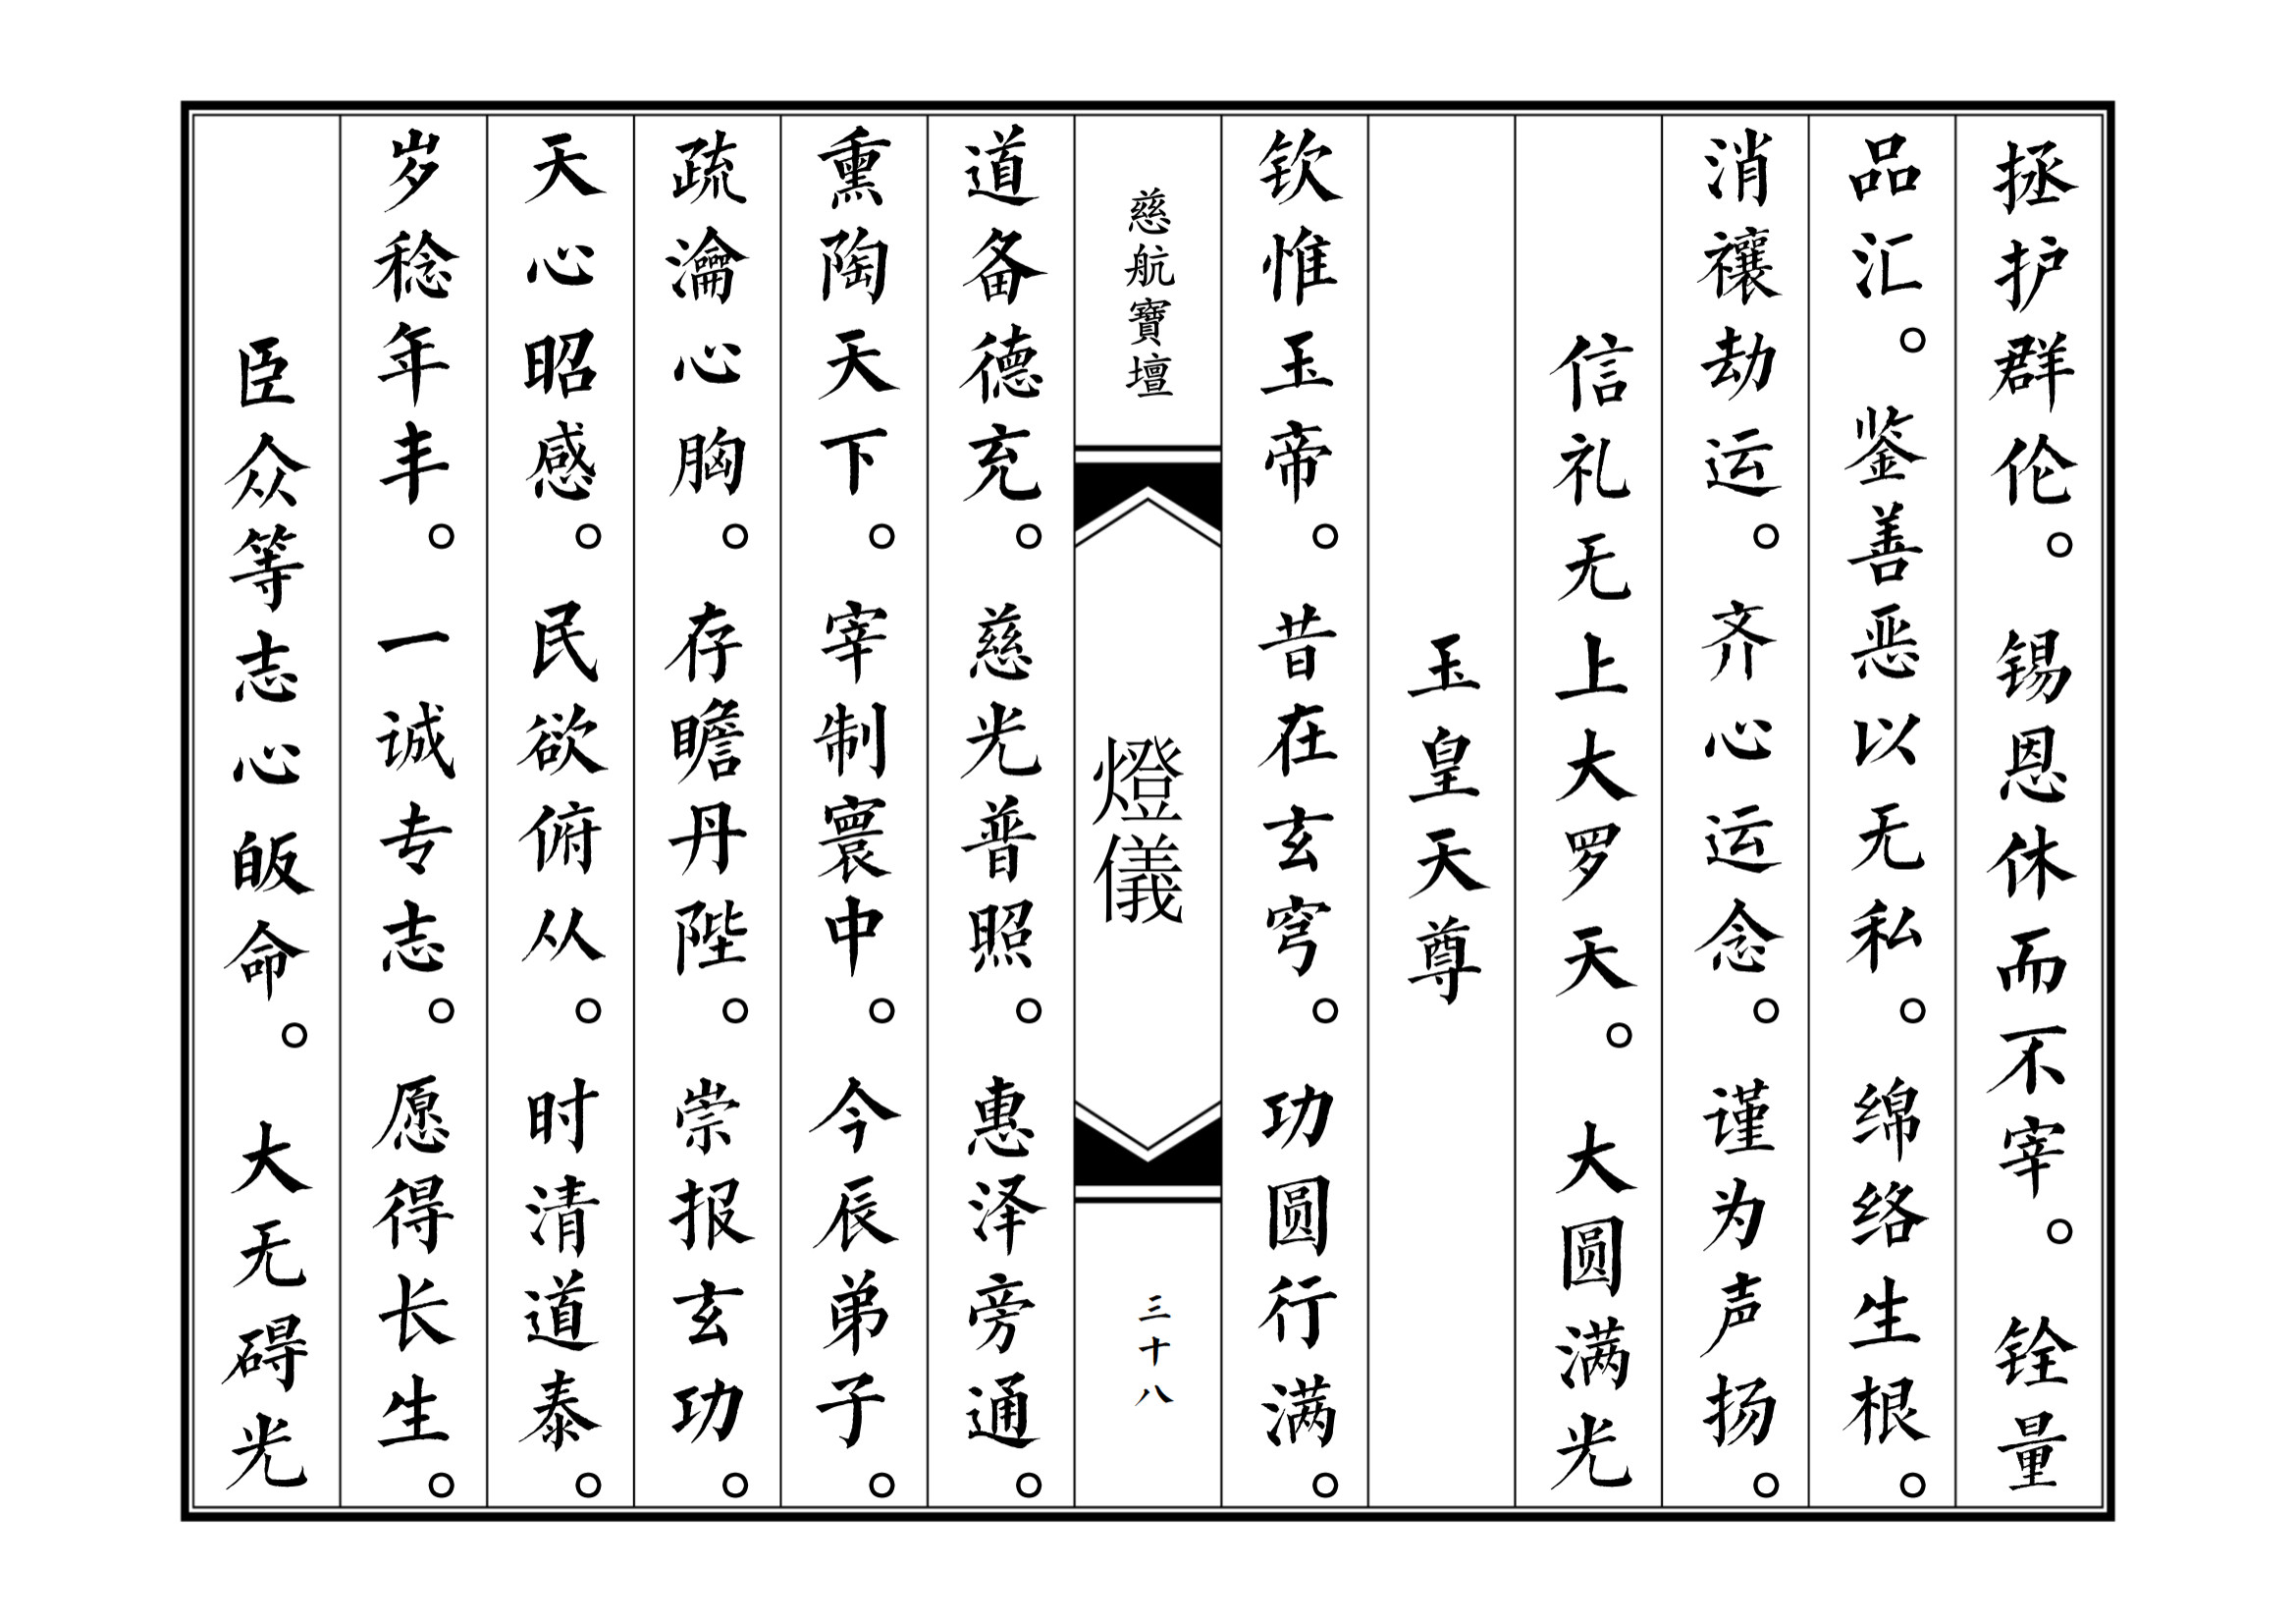 拯护群伦。锡恩休而不宰。铨量
品汇。鉴善恶以无私。绵络生根。
消禳劫运。齐心运念。谨为声扬。
信礼无上大罗天。大圆满光
玉皇天尊
钦惟玉帝。昔在玄穹。功圆行满。
慈航寶壇
燈儀
三十八
道备德充。慈光普照。惠泽旁通。
熏陶天下。宰制寰中。今辰弟子。
疏瀹心胸。存瞻丹陛。崇报玄功。
天心昭感。民欲俯从。时清道泰。
岁稔年丰。一诚专志。愿得长生。
臣众等志心皈命。大无碍光